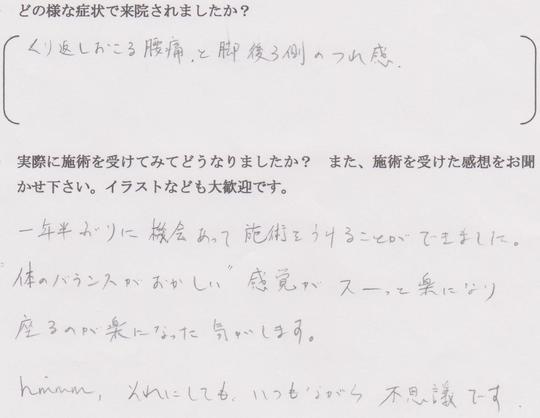 どの様な症状で来院されましたか？
くり返しおこる腰痛、と脚後ろ側のつれ感、
実際に施術を受けてみてどうなりましたか？　また、施術を受けた感想をお聞
かせ下さい。イラストなども大歓迎です。
一年半ぶりに機会あって施術をうけることができました。
"体のバランスがおかしい"感覚がスーっと楽になり
座るのが楽になった気がします。
hmmm, それにしても、いつもながら不思議です.